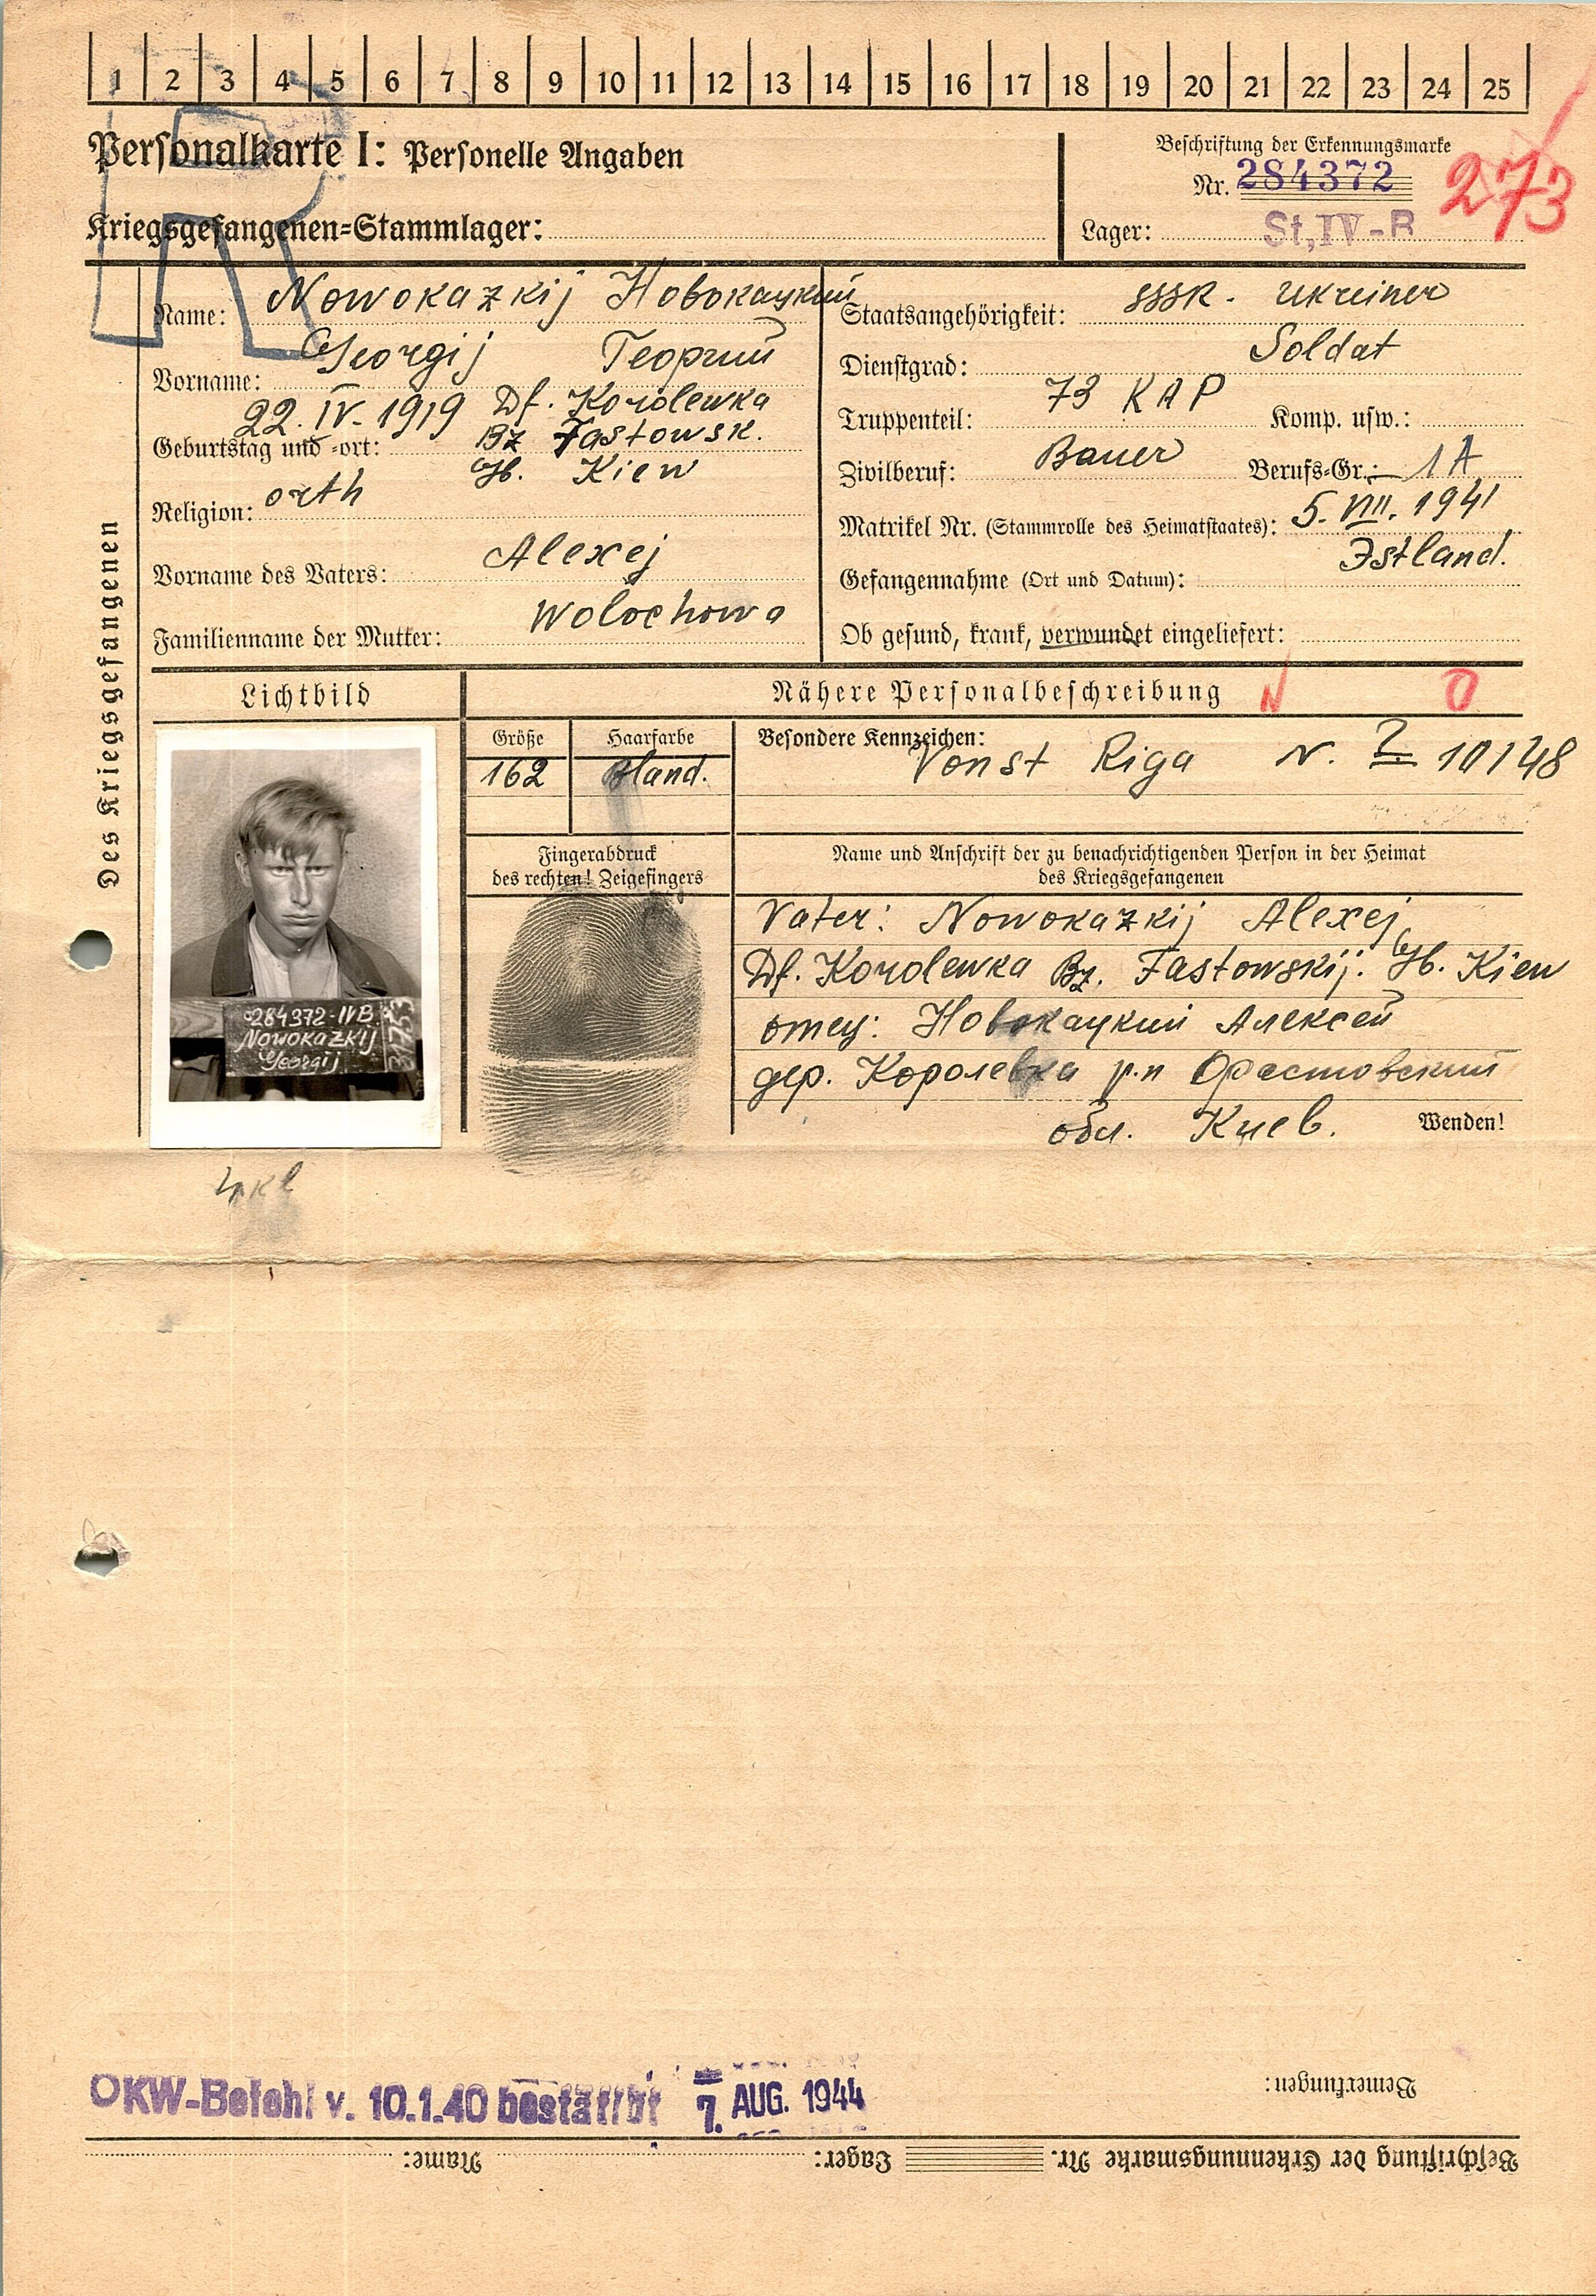 1 2 3 4 5 6 7 8 9 10 11 12 13 14 15 16 17 18 19 20 21 22 23 24 25
Personalkarte I: Personelle Angaben
Kriegsgefangenen=Stammlager:
Beschriftung der Erkennungsmarke
Nr. 284372
Lager: St,IV-B
273
Des Kriegsgefangenen
Name: Nowokazkij Новокацкий
Vorname: Georgij Георгий
22. IV. 1919 Df. Korolewka
Geburtstag und =ort: Bz Fastowsk.
Gb. Kiew
Religion: orth
Vorname des Vaters: Alexej
Familienname der Mutter: Wolochowa
Staatsangehörigkeit: SSSR. Ukreiner
Dienstgrad: Soldat
Truppenteil: 73 KAP Komp. usw.:
Zivilberuf: Bauer Berufs=Gr.: 1A
Matrikel Nr. (Stammrolle des Heimatstaates): 5. VIII. 1941
Gefangennahme (Ort und Datum): Istland.
Ob gesund, krank, verwundet eingeliefert:
Lichtbild
Nähere Personalbeschreibung N O
Größe Haarfarbe
162 Bland.
Besondere Kennzeichen:
Vonst Riga N. ? 10148
Fingerabdruck
des rechten! Zeigefingers
Name und Anschrift der zu benachrichtigenden Person in der Heimat
des Kriegsgefangenen
Vater: Nowokazkij Alexej
Df. Korolewka Bz. Fastowskij. Gb. Kiew
отец: Новокацкий Алексей
дер. Королевка р.н Фастовский
обл. Киев.
Wenden!
284372-IVB
Nowokazkij
Georgij
3753
4 kl
OKW-Befehl v. 10.1.40 bestätigt 7. AUG. 1944
Bemerkungen:
Beschriftung der Erkennungsmarke Nr. Lager: Name: